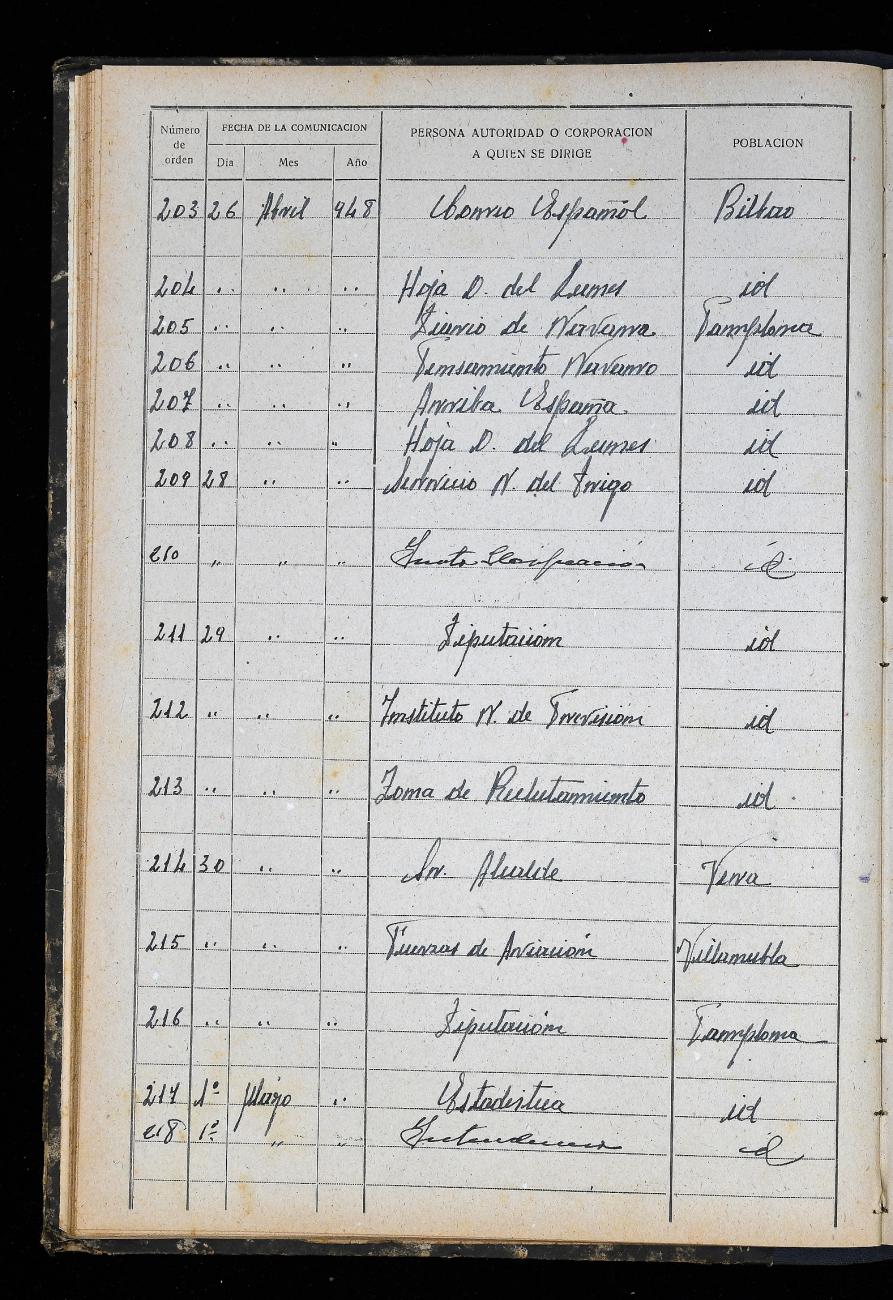 Número de orden FECHA DE LA COMUNICACION PERSONA AUTORIDAD O CORPORACION A QUIEN SE DIRIGE POBLACION
Día Mes Año
203 26 Abril 948 Correo Español Bilbao
204 .. .. .. Hoja O. del Lunes id
205 .. .. .. Diario de Navarra Pamplona
206 .. .. .. Pensamiento Navarro id
207 .. .. .. Arriba España. id
208 .. .. .. Hoja O. del Lunes id
209 28 .. .. Servicio N. del Trigo id
210 " " " Junta Clasificación id
211 29 .. .. Diputación id
212 .. .. .. Instituto N. de Previsión id
213 .. .. .. Zona de Reclutamiento id
214 30 .. .. Sr. Alcalde Vera
215 .. .. .. Fuerzas de Aviación Villanubla
216 .. .. .. Diputación Pamplona
217 1º Mayo .. Estadistica id
218 1º " " Intendencia id